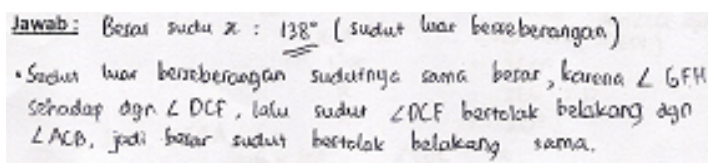 Jawab : Besar sudu x : 138° ( sudut luar berseberangan )
• Sudut luar berseberangan sudutnya sama besar, karena ∠ GFH
sehadap dgn ∠ DCF, lalu sudut ∠DCF bertolak belakang dgn
∠ACB, jadi besar sudut bertolak belakang sama.